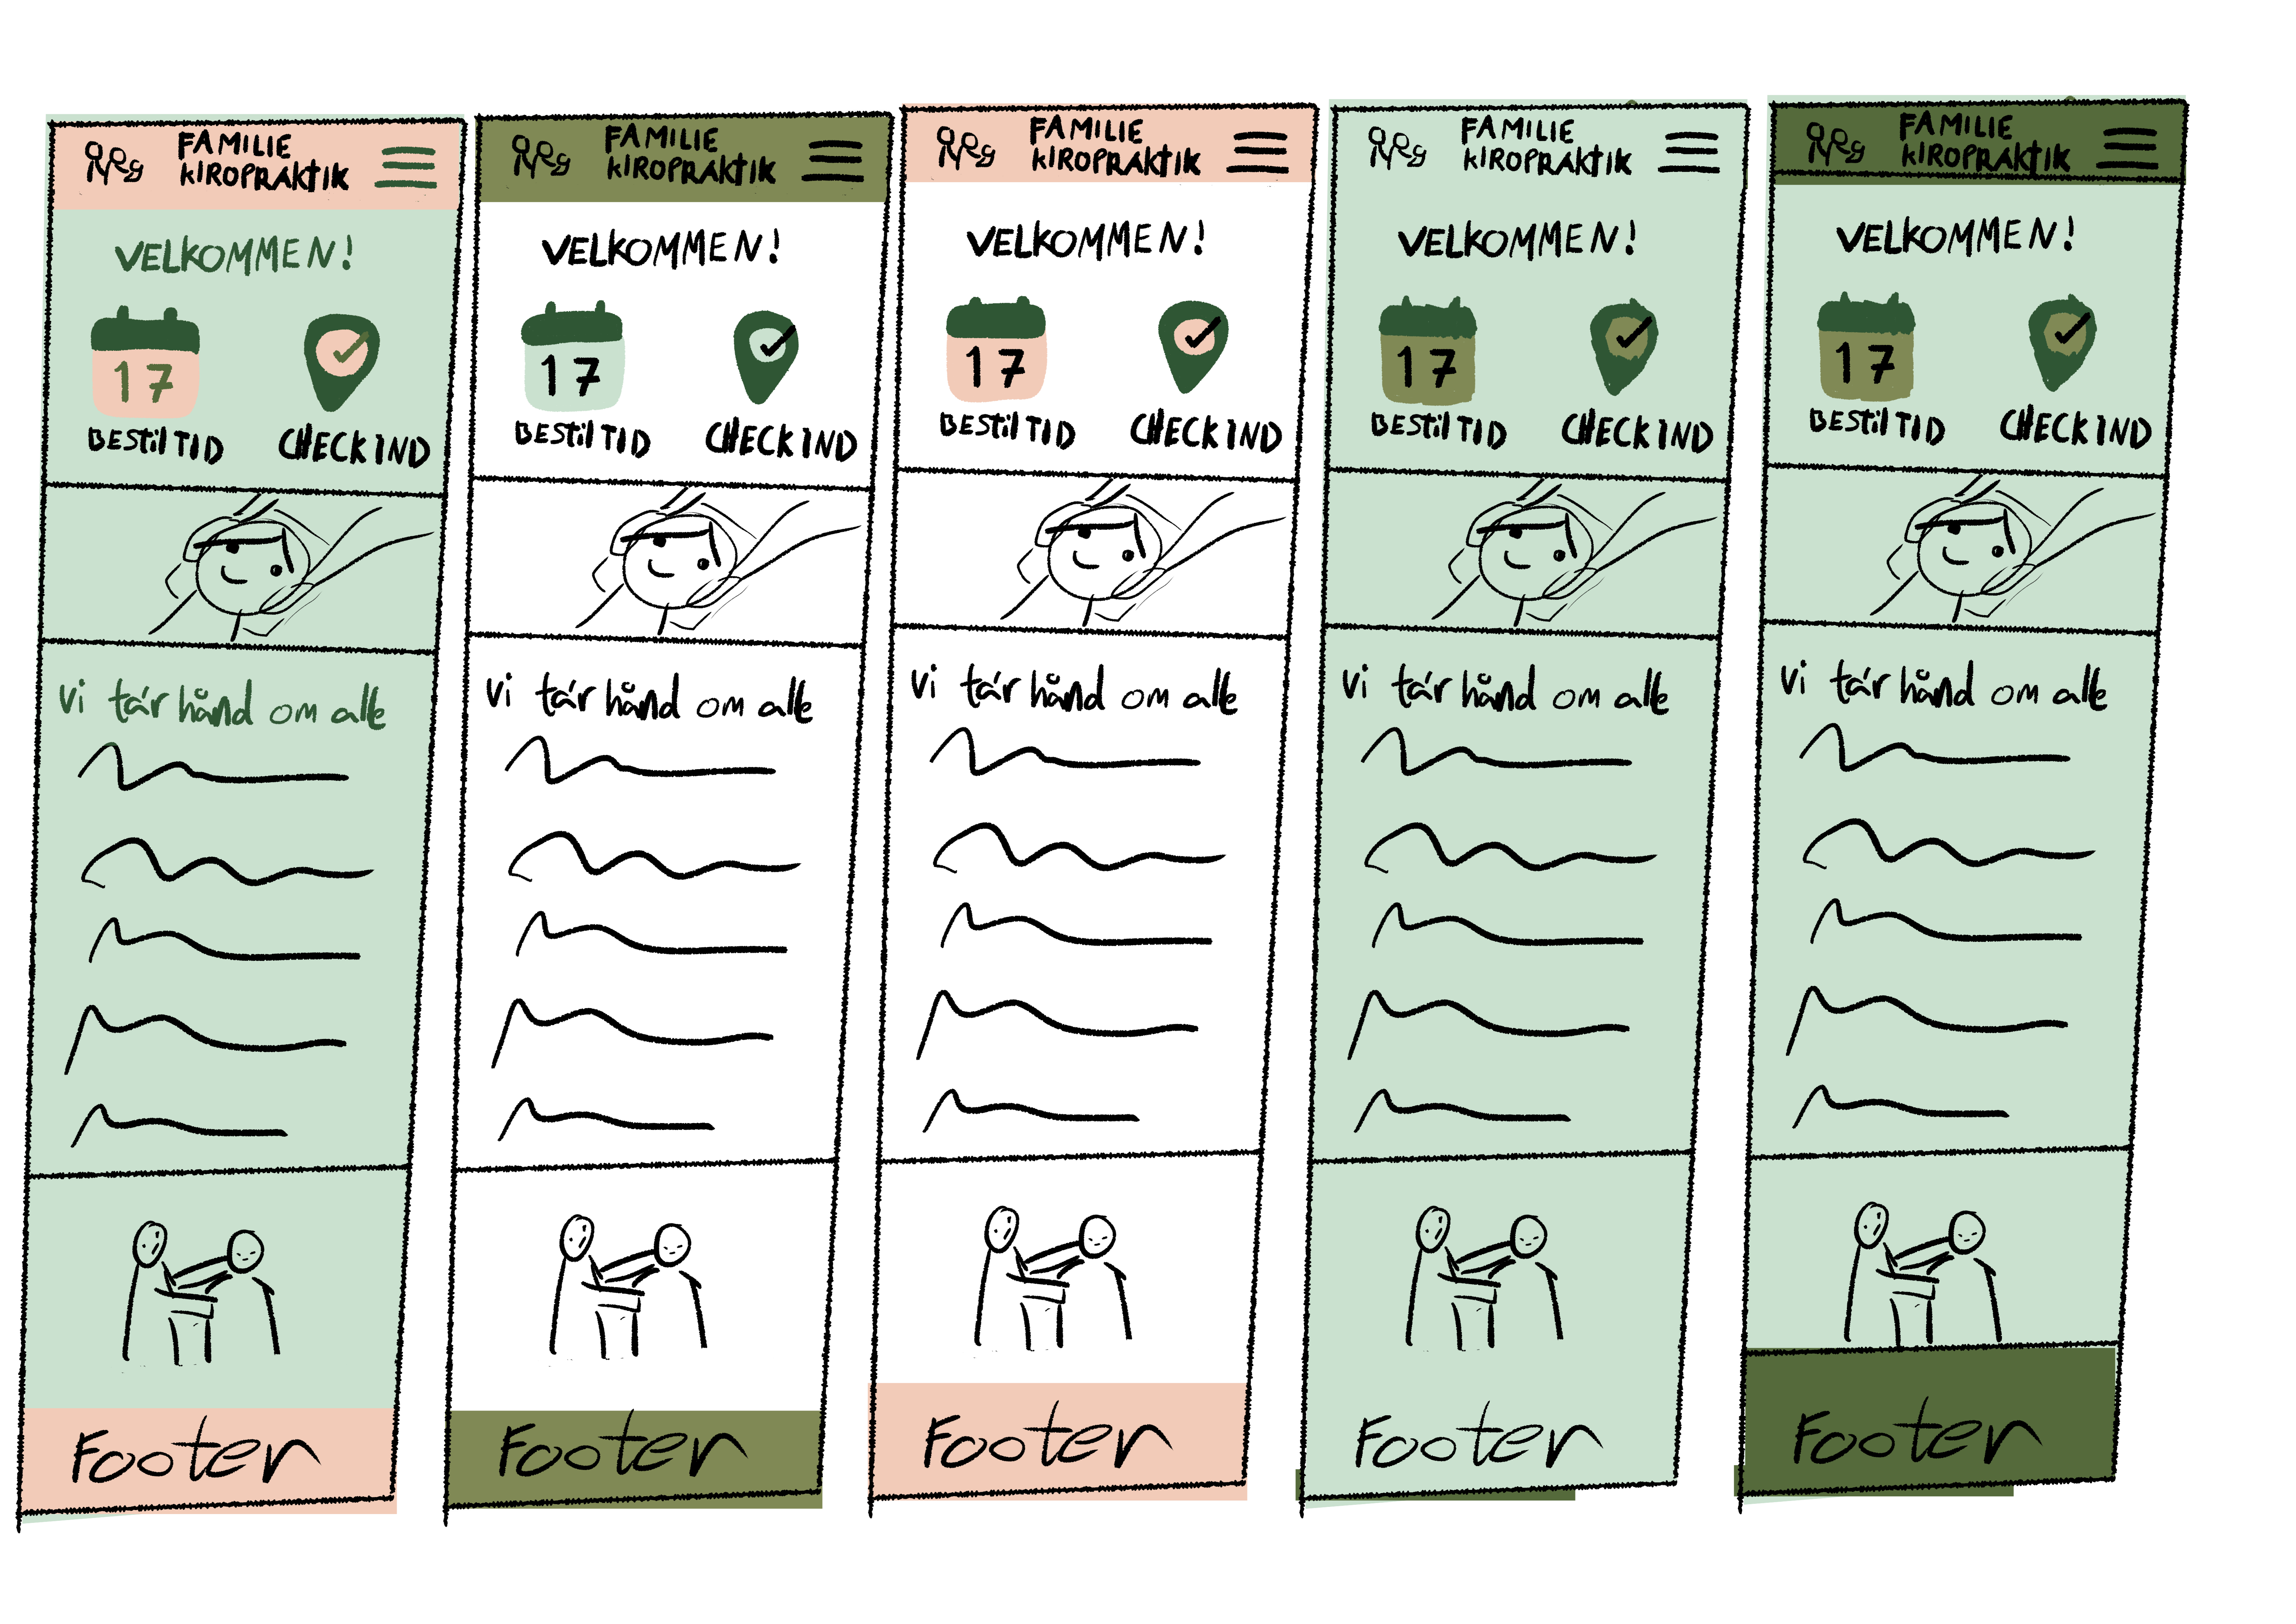 FAMILIE
KIROPRAKTIK
VELKOMMEN!
17
BESTIL TID
CHECK IND
Vi tar hånd om alle
Footer
FAMILIE
KIROPRAKTIK
VELKOMMEN!
17
BESTIL TID
CHECK IND
Vi tar hånd om alle
Footer
FAMILIE
KIROPRAKTIK
VELKOMMEN!
17
BESTIL TID
CHECK IND
Vi tar hånd om alle
Footer
FAMILIE
KIROPRAKTIK
VELKOMMEN!
17
BESTIL TID
CHECK IND
Vi tar hånd om alle
Footer
FAMILIE
KIROPRAKTIK
VELKOMMEN!
17
BESTIL TID
CHECK IND
Vi tar hånd om alle
Footer